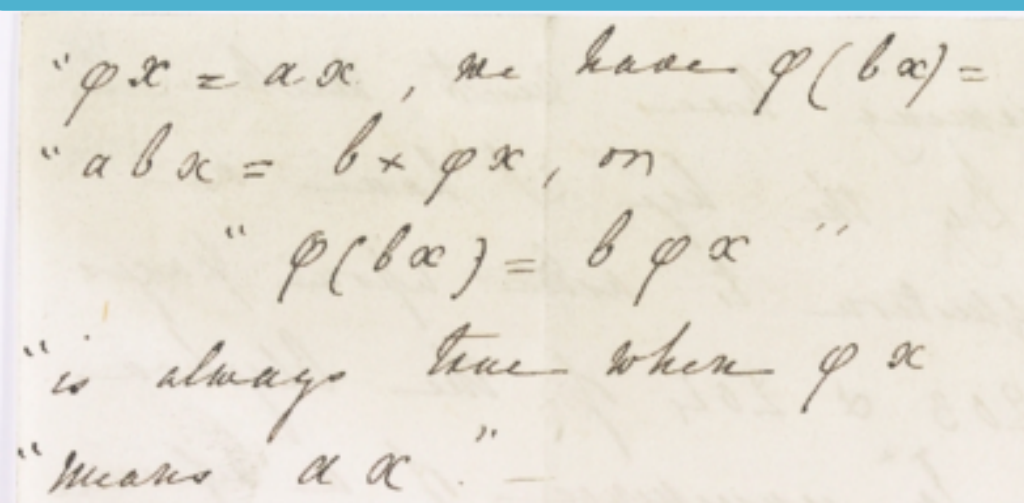 "φx = ax, we have φ(bx) =
"abx = b × φx, or
" φ(bx) = b φx "
"is always true when φx
"means ax". —